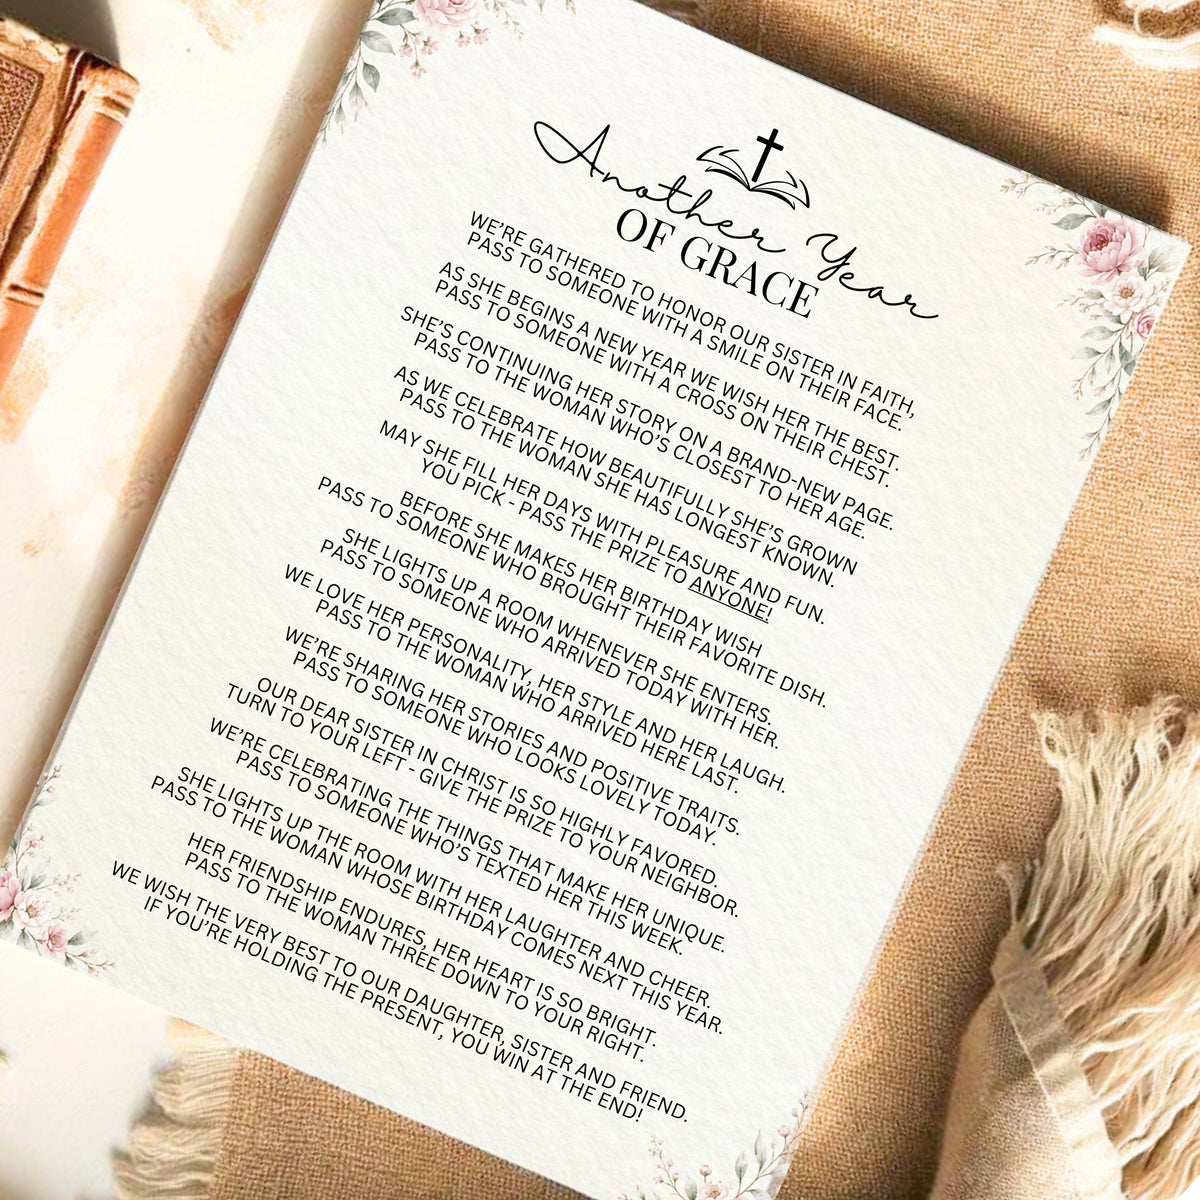 Another Year
OF GRACE
WE'RE GATHERED TO HONOR OUR SISTER IN FAITH,
PASS TO SOMEONE WITH A SMILE ON THEIR FACE.
AS SHE BEGINS A NEW YEAR WE WISH HER THE BEST.
PASS TO SOMEONE WITH A CROSS ON THEIR CHEST.
SHE'S CONTINUING HER STORY ON A BRAND-NEW PAGE.
PASS TO THE WOMAN WHO'S CLOSEST TO HER AGE.
AS WE CELEBRATE HOW BEAUTIFULLY SHE'S GROWN
PASS TO THE WOMAN SHE HAS LONGEST KNOWN.
MAY SHE FILL HER DAYS WITH PLEASURE AND FUN.
YOU PICK - PASS THE PRIZE TO ANYONE!
BEFORE SHE MAKES HER BIRTHDAY WISH
PASS TO SOMEONE WHO BROUGHT THEIR FAVORITE DISH.
SHE LIGHTS UP A ROOM WHENEVER SHE ENTERS.
PASS TO SOMEONE WHO ARRIVED TODAY WITH HER.
WE LOVE HER PERSONALITY, HER STYLE AND HER LAUGH.
PASS TO THE WOMAN WHO ARRIVED HERE LAST.
WE'RE SHARING HER STORIES AND POSITIVE TRAITS.
PASS TO SOMEONE WHO LOOKS LOVELY TODAY.
OUR DEAR SISTER IN CHRIST IS SO HIGHLY FAVORED.
TURN TO YOUR LEFT - GIVE THE PRIZE TO YOUR NEIGHBOR.
WE'RE CELEBRATING THE THINGS THAT MAKE HER UNIQUE.
PASS TO SOMEONE WHO'S TEXTED HER THIS WEEK.
SHE LIGHTS UP THE ROOM WITH HER LAUGHTER AND CHEER.
PASS TO THE WOMAN WHOSE BIRTHDAY COMES NEXT THIS YEAR.
HER FRIENDSHIP ENDURES, HER HEART IS SO BRIGHT.
PASS TO THE WOMAN THREE DOWN TO YOUR RIGHT.
WE WISH THE VERY BEST TO OUR DAUGHTER, SISTER AND FRIEND.
IF YOU'RE HOLDING THE PRESENT, YOU WIN AT THE END!